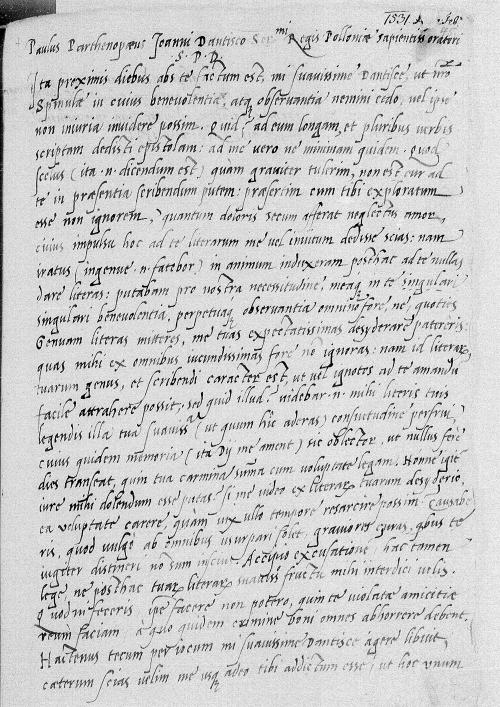 1531. A
Paulus Parthenopæus Joanni Dantisco Ser.mi Regis Polloniæ sapientiss. oratori
S. P. D.
Ita proximis diebus abs te factum est, mi suavissime Dantisce, ut nro
Spinulæ in cuius benevolentia, atq observantia nemini cedo, vel ipse
non iniuria invidere possim. Quid? ad eum longam, et pluribus verbis
scriptam dedisti epistolam: ad me vero ne minimam quidem. Quod
scelus (ita .n. dicendum est) quàm graviter tulerim, non est cur ad
te in præsentia scribendum putem: præsertim cum tibi exploratum
esse non ignorem, quantum doloris secum afferat neglectus amor,
cuius impulsu hoc ad te literarum me vel invitum dedisse scias: nam
iratus (ingenue .n. fatebor) in animum induxeram posthac ad te nullas
dare literas: putabam pro nostra necessitudine, meaq in te singulari
singulari benevolentia, perpetuaq observantia omnino fore, ne, quoties
Genuam literas mitteres, me tuas expectatissimas desyderare patereris:
quas mihi ex omnibus iucundissimas fore nō ignoras: nam id literar
tuarum genus, et scribendi caracter est, ut vel ignotos ad te amandū
facile attrahere possit, sed quid illud? videbar .n. mihi literis tuis
legendis illa tua suaviss. (ut quum hic aderas) consuetudine perfrui,
cuius quidem memoria (ita Dij me ament) sic oblector, ut nullus ferè
dies transeat, quin tua carmina summa cum voluptate legam. Nonne igit
iure mihi dolendum esse putas si me video ex literar tuarum desyderio,
ea voluptate carere, quàm vix ullo tempore resarcire possim? Causabe
ris, quod vulgò ab omnibus usurpari solet, graviores curas, qbus te
iugiter distineri no sum inscius. Accipio excusationē hac tamen
lege ne posthac tuar literar suaviss fructu mihi interdici velis.
Quod ni feceris ipse facere non potero, quin te violatæ amicitiæ
reum faciam à quo quidem crimine boni omnes abhorrere debent.
Hactenus tecum per iocum mi suavissime Dantisce agere libuit,
cæterum scias velim me usq adeo tibi addictum esse, ut hoc unum